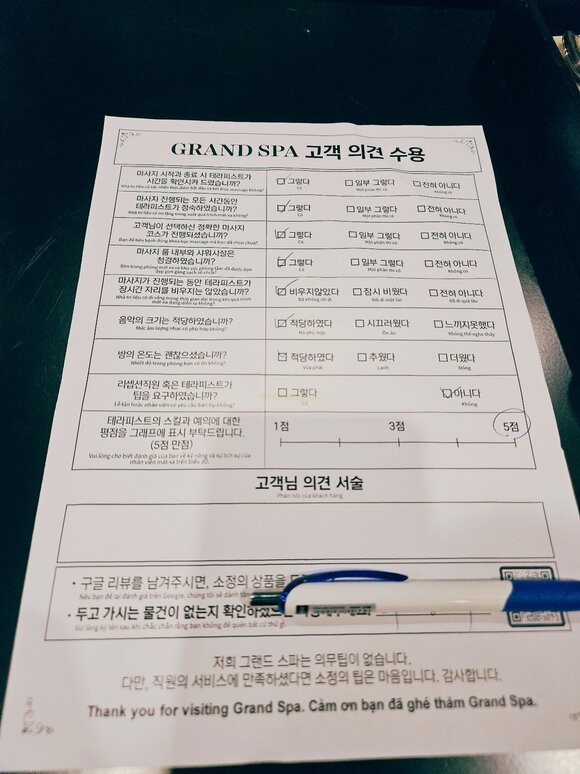 GRAND SPA 고객 의견 수용
마사지 시작과 종료 시 테라피스트가
시간을 확인시켜 드렸습니까?
그렇다
Có
일부 그렇다
Một phần thì có
전혀 아니다
Không có
마사지 진행되는 모든 시간동안
테라피스트가 정숙하였습니까?
그렇다
Có
일부 그렇다
Một phần thì có
전혀 아니다
Không có
고객님이 선택하신 정확한 마사지
코스가 진행되셨습니까?
그렇다
Có
일부 그렇다
Một phần thì có
전혀 아니다
Không có
마사지 룸 내부와 샤워시설은
청결하였습니까?
그렇다
Có
일부 그렇다
Một phần thì có
전혀 아니다
Không có
마사지가 진행되는 동안 테라피스트가
장시간 자리를 비우지는 않았습니까?
비우지않았다
Đã không rời đi
잠시 비웠다
Rời đi một lát
전혀 아니다
Đã đi quá lâu
음악의 크기는 적당하였습니까?
Mức âm lượng nhạc có phù hợp không?
적당하였다
Nó phù hợp
시끄러웠다
Ồn ào
느끼지못했다
Không thể nghe thấy
방의 온도는 괜찮으셨습니까?
Nhiệt độ trong phòng bạn có ổn không?
적당하였다
Vừa phải
추웠다
Lạnh
더웠다
Nóng
리셉션직원 혹은 테라피스트가
팁을 요구하였습니까?
Lễ tân hoặc nhân viên có yêu cầu bạn típ không?
그렇다
Có
아니다
Không
테라피스트의 스킬과 예의에 대한
평점을 그래프에 표시 부탁드립니다.
(5점 만점)
Vui lòng cho biết đánh giá của bạn về kỹ năng và sự lịch sự của
nhân viên mát xa trên biểu đồ.
1점 3점 5점
고객님 의견 서술
Phản hồi của khách hàng
• 구글 리뷰를 남겨주시면, 소정의 상품을
Nếu bạn để lại đánh giá trên Google, chúng tôi sẽ dành tặn
• 두고 가시는 물건이 없는지 확인하셨
Vui lòng ký tên sau khi chắc chắn rằng bạn không để quên bất cứ thứ gì
저희 그랜드 스파는 의무팁이 없습니다.
다만, 직원의 서비스에 만족하셨다면 소정의 팁은 마음입니다. 감사합니다.
Thank you for visiting Grand Spa. Cảm ơn bạn đã ghé thăm Grand Spa.